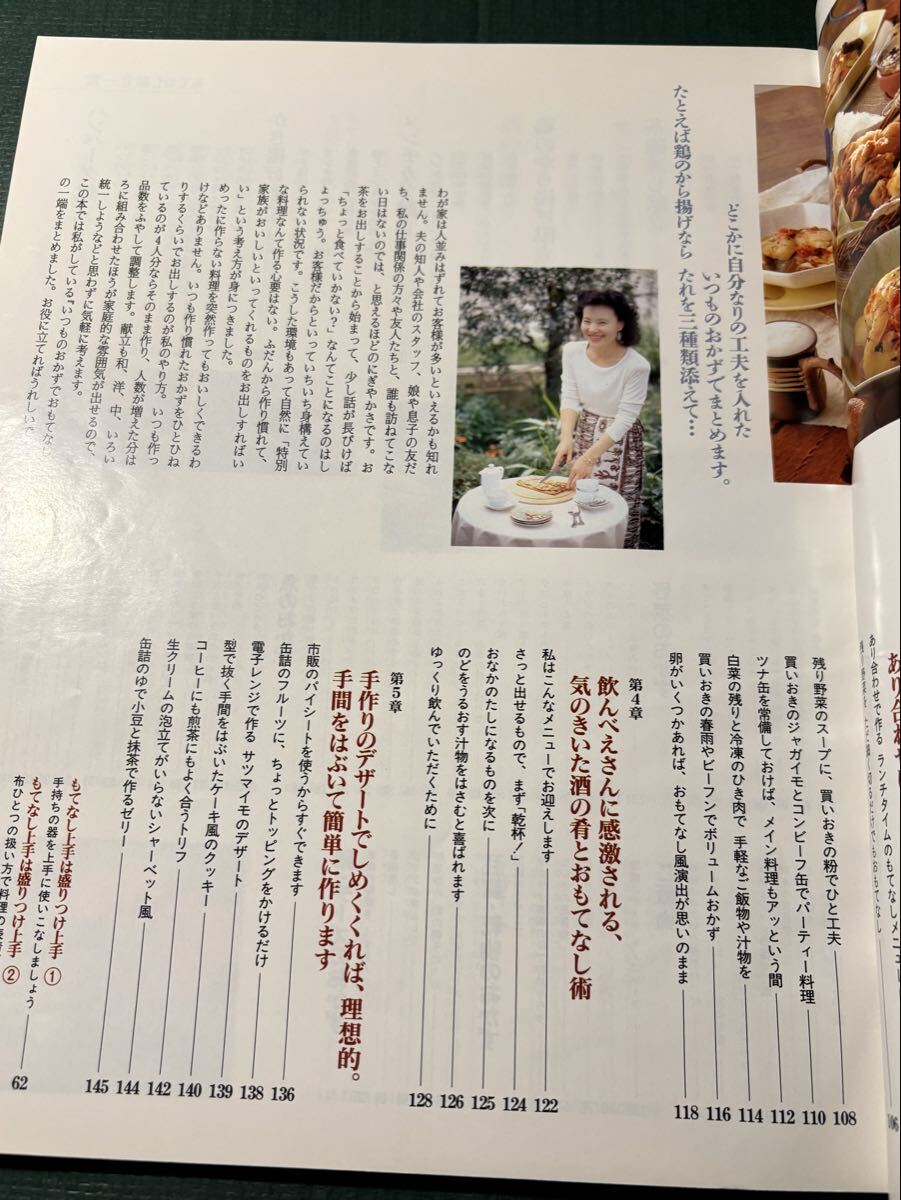 たとえば鶏のから揚げなら たれを二種類添えて…
どこかに自分なりの工夫を入れた
いつものおかずでまとめます。
わが家は人並みはずれてお客様が多いといえるかも知れ
ません。夫の知人や会社のスタッフ、娘や息子の友だ
ち、私の仕事関係の方々や友人たちと、誰も訪ねてこな
い日はないのでは、と思えるほどのにぎやかさです。お
茶をお出しすることから始まって、少し話が長びけば
「ちょっと食べていかない?」なんてことになるのはし
ょっちゅう。お客様だからといっていちいち身構えてい
られない状況です。こうした環境もあって自然に「特別
な料理なんて作る必要はない。ふだんから作り慣れて、
家族がおいしいといってくれるものをお出しすればい
い」という考え方が身につきました。
めったに作らない料理を突然作ってもおいしくできるわ
けなどありません。いつも作り慣れたおかずをひとひね
りするくらいでお出しするのが私のやり方。いつも作っ
ているのが4人分ならそのまま作り、人数が増えた分は
品数をふやして調整します。献立も和、洋、中、いろい
ろに組み合わせたほうが家庭的な雰囲気が出せるので、
統一しようなどと思わずに気軽に考えます。
この本では私がしている『いつものおかずでおもてな
の一端をまとめました。お役に立てればうれしいで
あり合わせで作る ランチタイムのもてなしメニュー
106
残り野菜のスープに、買いおきの粉でひと工夫 108
買いおきのジャガイモとコンビーフ缶でパーティー料理 110
ツナ缶を常備しておけば、メイン料理もアッという間 112
白菜の残りと冷凍のひき肉で 手軽なご飯物や汁物を 114
買いおきの春雨やビーフンでボリュームおかず 116
卵がいくつかあれば、おもてなし風演出が思いのまま 118
第4章
飲んべえさんに感激される、
気のきいた酒の肴とおもてなし術
私はこんなメニューでお迎えします 122
さっと出せるもので、まず「乾杯!」 124
おなかのたしになるものを次に 125
のどをうるおす汁物をはさむと喜ばれます 126
ゆっくり飲んでいただくために 128
第5章
手作りのデザートでしめくくれば、理想的。
手間をはぶいて簡単に作ります
市販のパイシートを使うからすぐできます 136
缶詰のフルーツに、ちょっとトッピングをかけるだけ 138
電子レンジで作る サツマイモのデザート 139
型で抜く手間をはぶいたケーキ風のクッキー 140
コーヒーにも煎茶にもよく合うトリフ 142
生クリームの泡立てがいらないシャーベット風 144
缶詰のゆで小豆と抹茶で作るゼリー 145
もてなし上手は盛りつけ上手 ①
手持ちの器を上手に使いこなしましょう 62
もてなし上手は盛りつけ上手 ②
布ひとつの扱い方で料理の表